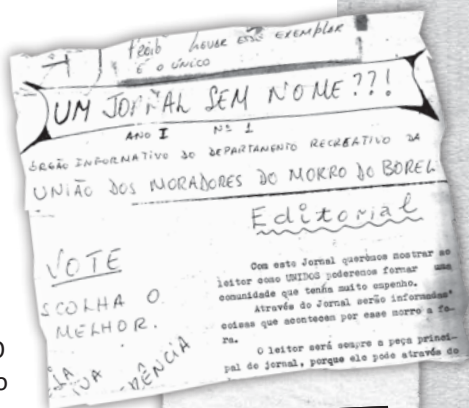 LEVAR ESSE EXEMPLAR
É O ÚNICO
UM JORNAL SEM NOME??!
ANO I Nº 1
ÓRGÃO INFORMATIVO DO DEPARTAMENTO RECREATIVO DA
UNIÃO DOS MORADORES DO MORRO DO BOREL
VOTE
SCOLHA O
MELHOR.
Editorial
Com este Jornal queremos mostrar ao
leitor como UNIDOS poderemos formar uma
comunidade que tenha muito empenho.
Através do Jornal serão informadas
coisas que acontecem por esse morro a fo-
ra.
O leitor será sempre a peça princi-
pal do jornal, porque ele pode através do